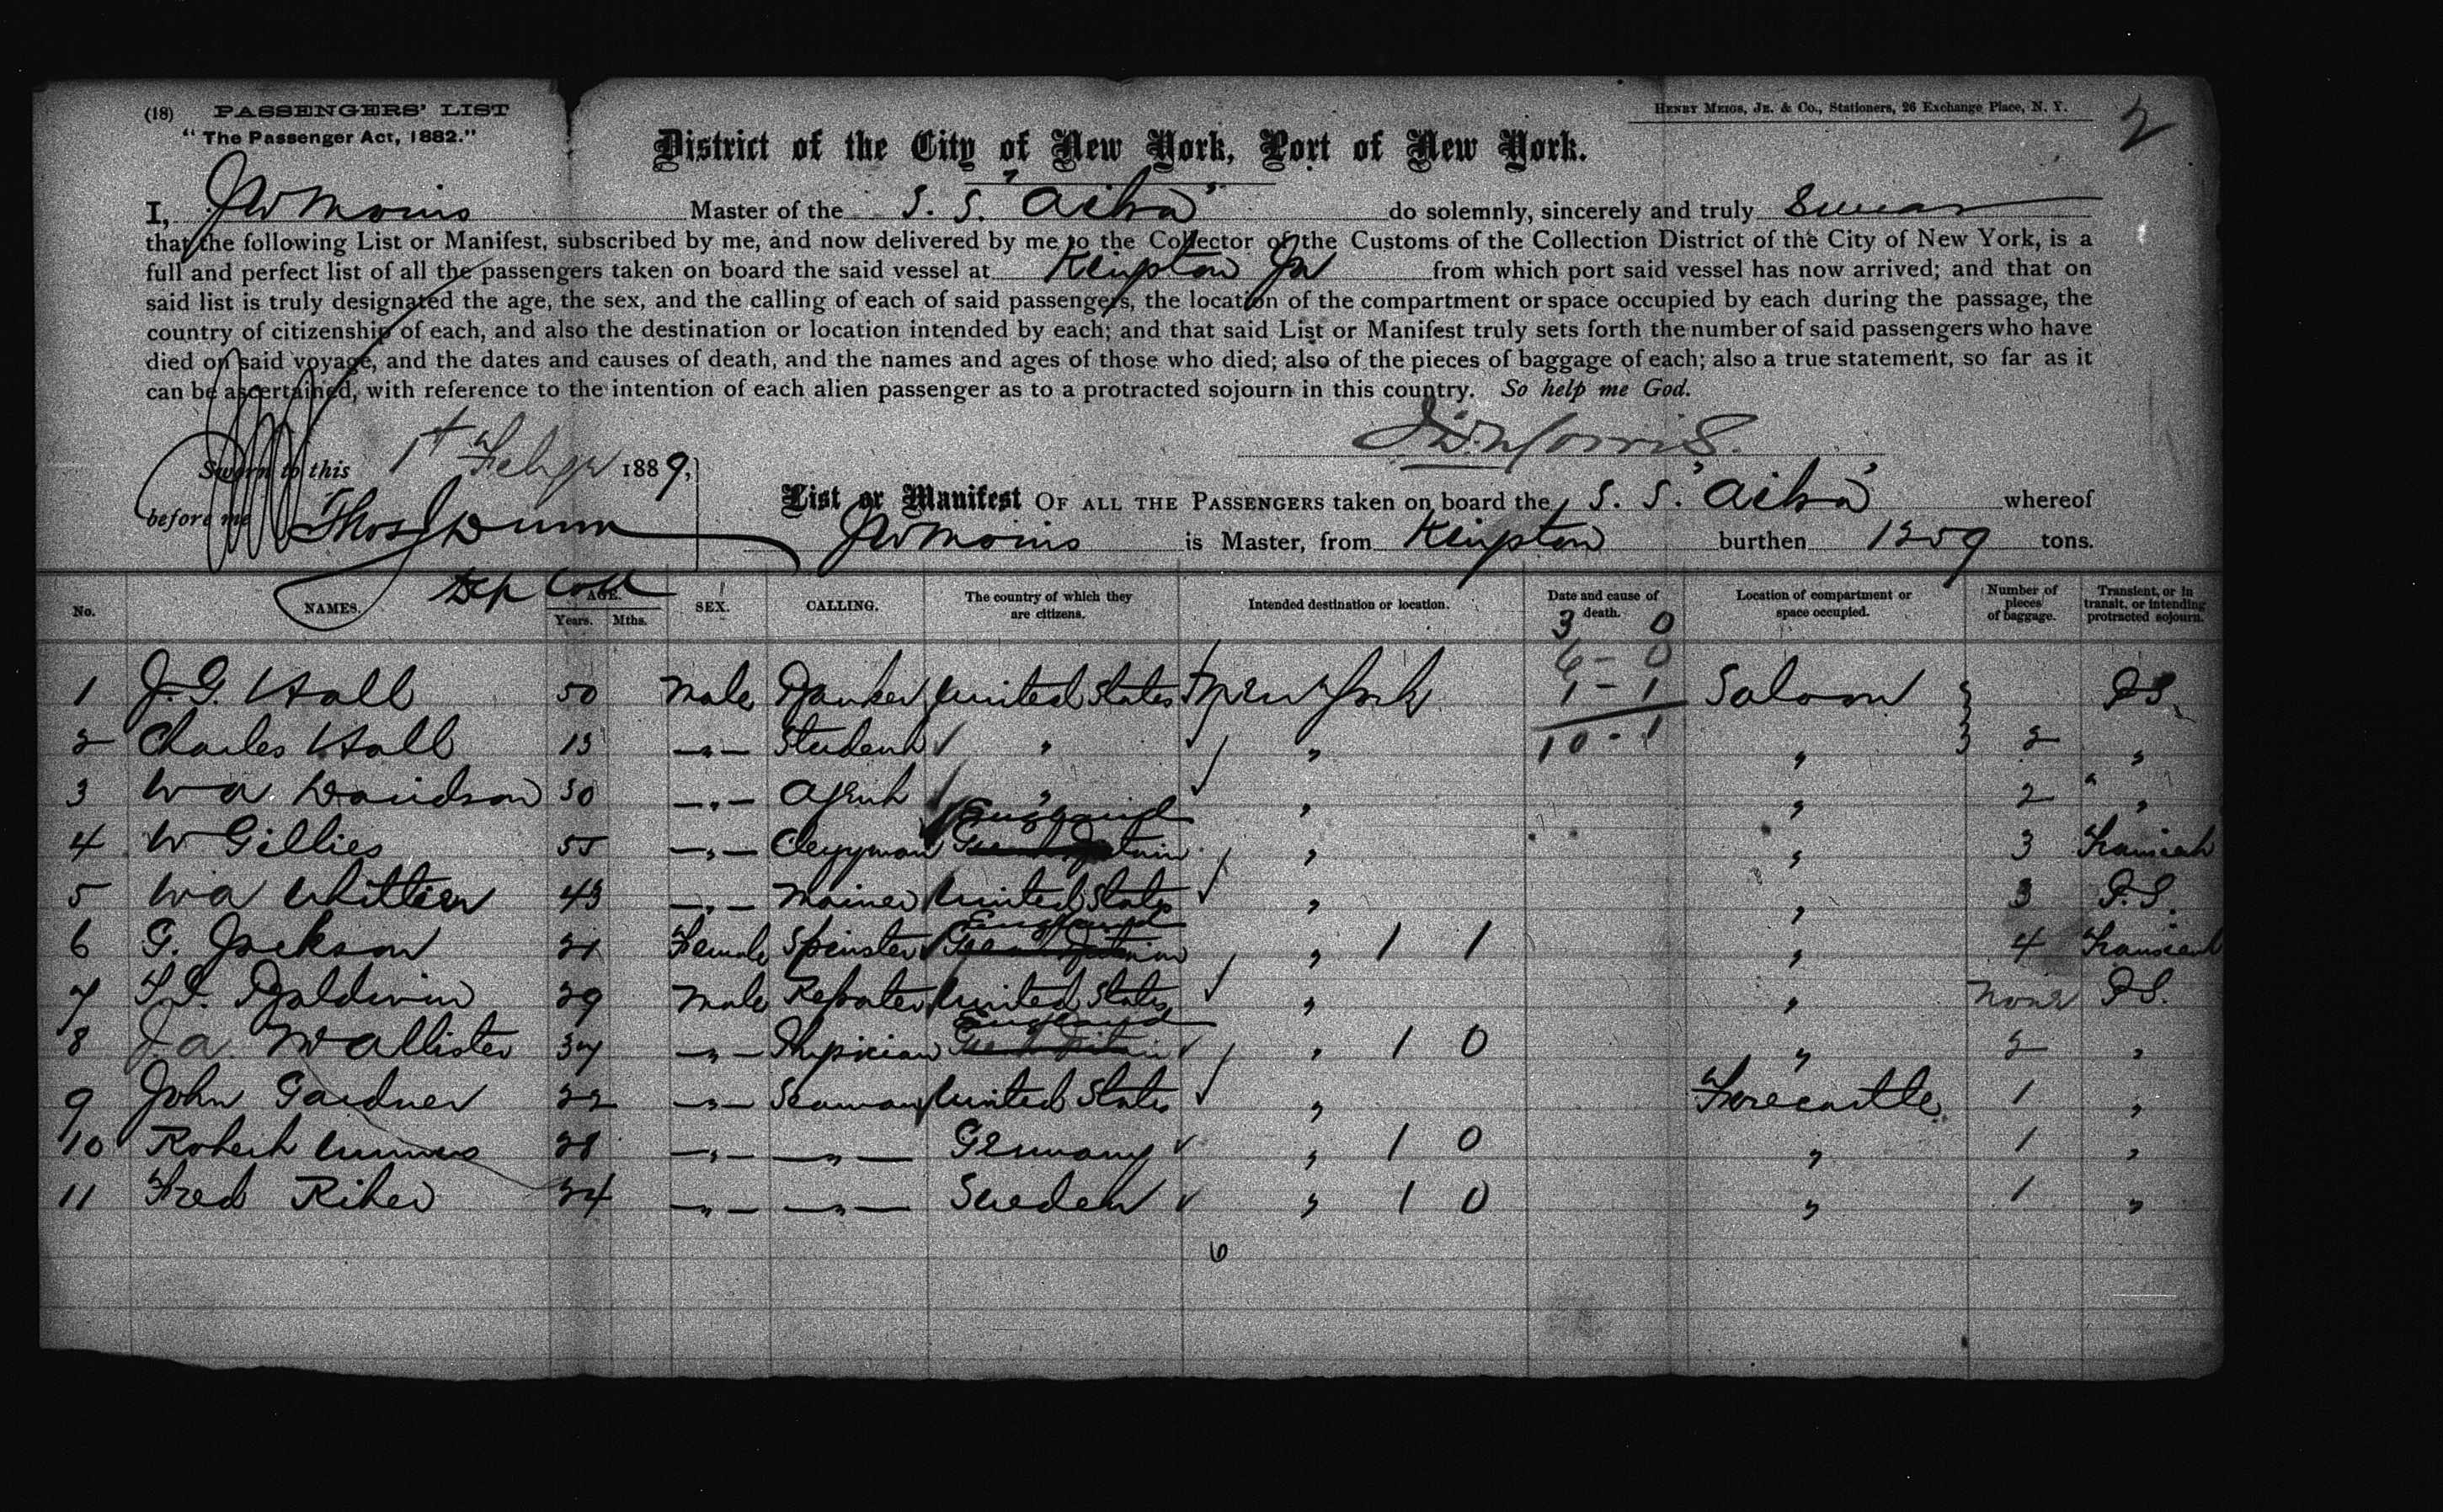 (18) PASSENGERS' LIST
"The Passenger Act, 1882."
HENRY MEIGS, JR. & CO., Stationers, 26 Exchange Place, N. Y.
2
District of the City of New York, Port of New York.
I, JW Morris Master of the S. S. "Ailsa" do solemnly, sincerely and truly Swear
that the following List or Manifest, subscribed by me, and now delivered by me to the Collector of the Customs of the Collection District of the City of New York, is a
full and perfect list of all the passengers taken on board the said vessel at Kingston Ja from which port said vessel has now arrived; and that on
said list is truly designated the age, the sex, and the calling of each of said passengers, the location of the compartment or space occupied by each during the passage, the
country of citizenship of each, and also the destination or location intended by each; and that said List or Manifest truly sets forth the number of said passengers who have
died on said voyage, and the dates and causes of death, and the names and ages of those who died; also of the pieces of baggage of each; also a true statement, so far as it
can be ascertained, with reference to the intention of each alien passenger as to a protracted sojourn in this country. So help me God.
J.W. Morris.
Sworn to this 1st 1889,
before me Thos Dunn
Dep Coll
List or Manifest OF ALL THE PASSENGERS taken on board the S. S. "Ailsa" whereof
JW Morris is Master, from Kingston burthen 1259 tons.
No. NAMES. AGE. Years. Mths. SEX. CALLING. The country of which they are citizens. Intended destination or location. Date and cause of death. Location of compartment or space occupied. Number of pieces of baggage. Transient, or in transit, or intending protracted sojourn.
3 0
6 - 0
1 - 1
10 - 1
1 J. G. Hall 50 Male Banker United States New York Saloon P.S.
2 Charles Hall 13 — " — Student " " " 2 "
3 W A. Davidson 30 — " — Agent " " " 2 "
4 W Gillies 55 — " — Clergyman England Great Britain " " 3 Transient
5 W A Whittier 43 — " — United States " " 3 P.S.
6 G. Jackson 21 Female Spinster England Great Britain " 1 1 " 4 Transient
7 Baldwin 29 Male Reporter United States " " None P.S.
8 J A. McAllister 37 — " — Physician England Great Britain " 1 0 " 2 "
9 John Gardner 22 — " — Seaman United States " Forecastle 1 "
10 Robert 28 — " — — " — Germany " 1 0 " 1 "
11 Fred Riker 24 — " — — " — Sweden " 1 0 " 1 "
6